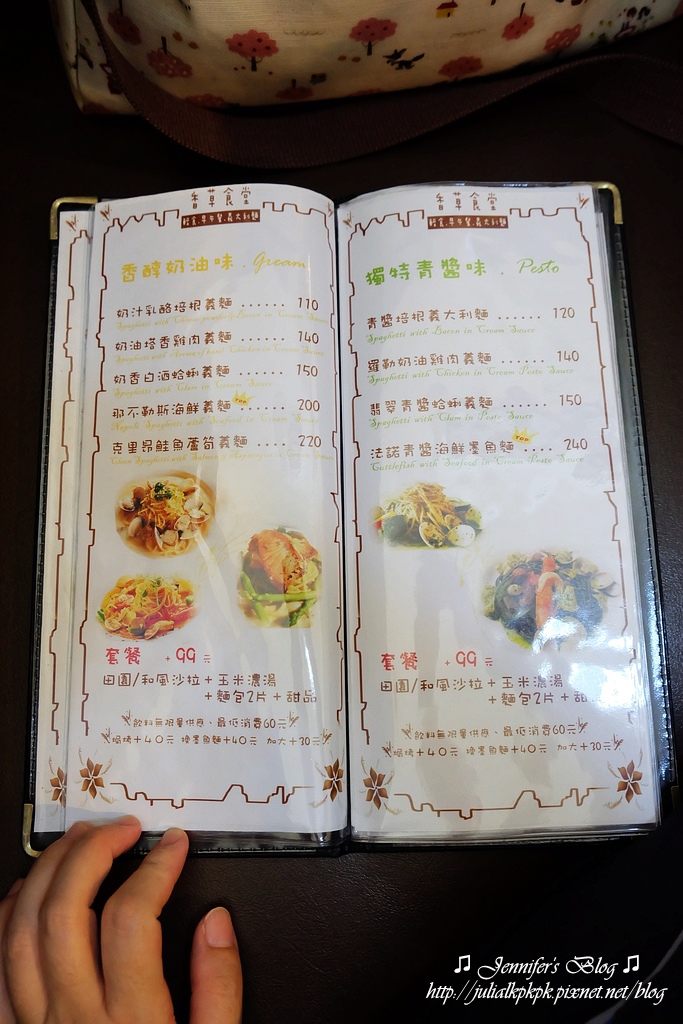 香草食堂
輕食.早午餐.義大利麵
香醇奶油味 . Cream
奶汁乳酪培根義麵 ...... 110
奶油塔香雞肉義麵 ...... 140
奶香白酒蛤蜊義麵 ...... 150
Spaghetti with Clam in Cream Sauce
那不勒斯海鮮義麵 TOP ...... 200
Napoli Spaghetti with Seafood in Cream Sauce
克里昂鮭魚蘆筍義麵 .... 220
套餐 +99元
田園/和風沙拉+玉米濃湯
+麵包2片+甜品
飲料無限量供應、最低消費60元
焗烤+40元 換墨魚麵+40元 加大+30元
香草食堂
輕食.早午餐.義大利麵
獨特青醬味 . Pesto
青醬培根義大利麵 ...... 120
Spaghetti with Bacon in Cream Sauce
羅勒奶油雞肉義麵 ...... 140
Spaghetti with Chicken in Cream Pesto Sauce
翡翠青醬蛤蜊義麵 ...... 150
Spaghetti with Clam in Pesto Sauce
法諾青醬海鮮墨魚麵 TOP .... 240
Cuttlefish with Seafood in Cream Pesto Sauce
套餐 +99元
田園/和風沙拉+玉米濃湯
+麵包2片+甜
飲料無限量供應、最低消費60元
焗烤+40元 換墨魚麵+40元 加大+30元
♫ Jennifer's Blog ♫
http://julialkpkpk.pixnet.net/blog